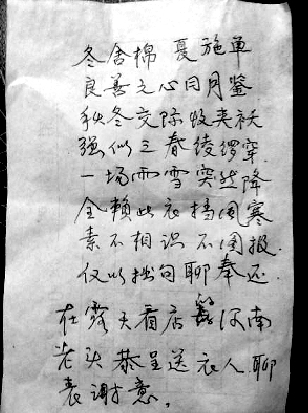 冬舍棉 夏施单
良善之心日月鉴
秋冬交际收夹袄
强似三春绫锣穿
一场雨雪突然降
全赖此衣挡风寒
素不相识不图报
仅以拙句聊奉还
在露天看店 河南
老头 恭呈送衣人 聊
表谢意。